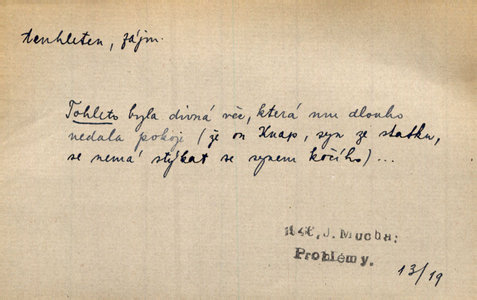 tenhleten, zájm.
Tohleto byla divná věc, která mu dlouho
nedala pokoje (že on Knap, syn ze statku,
se nemá stýkat se synem kočího)...
J. Mucha:
Problémy.
13/19